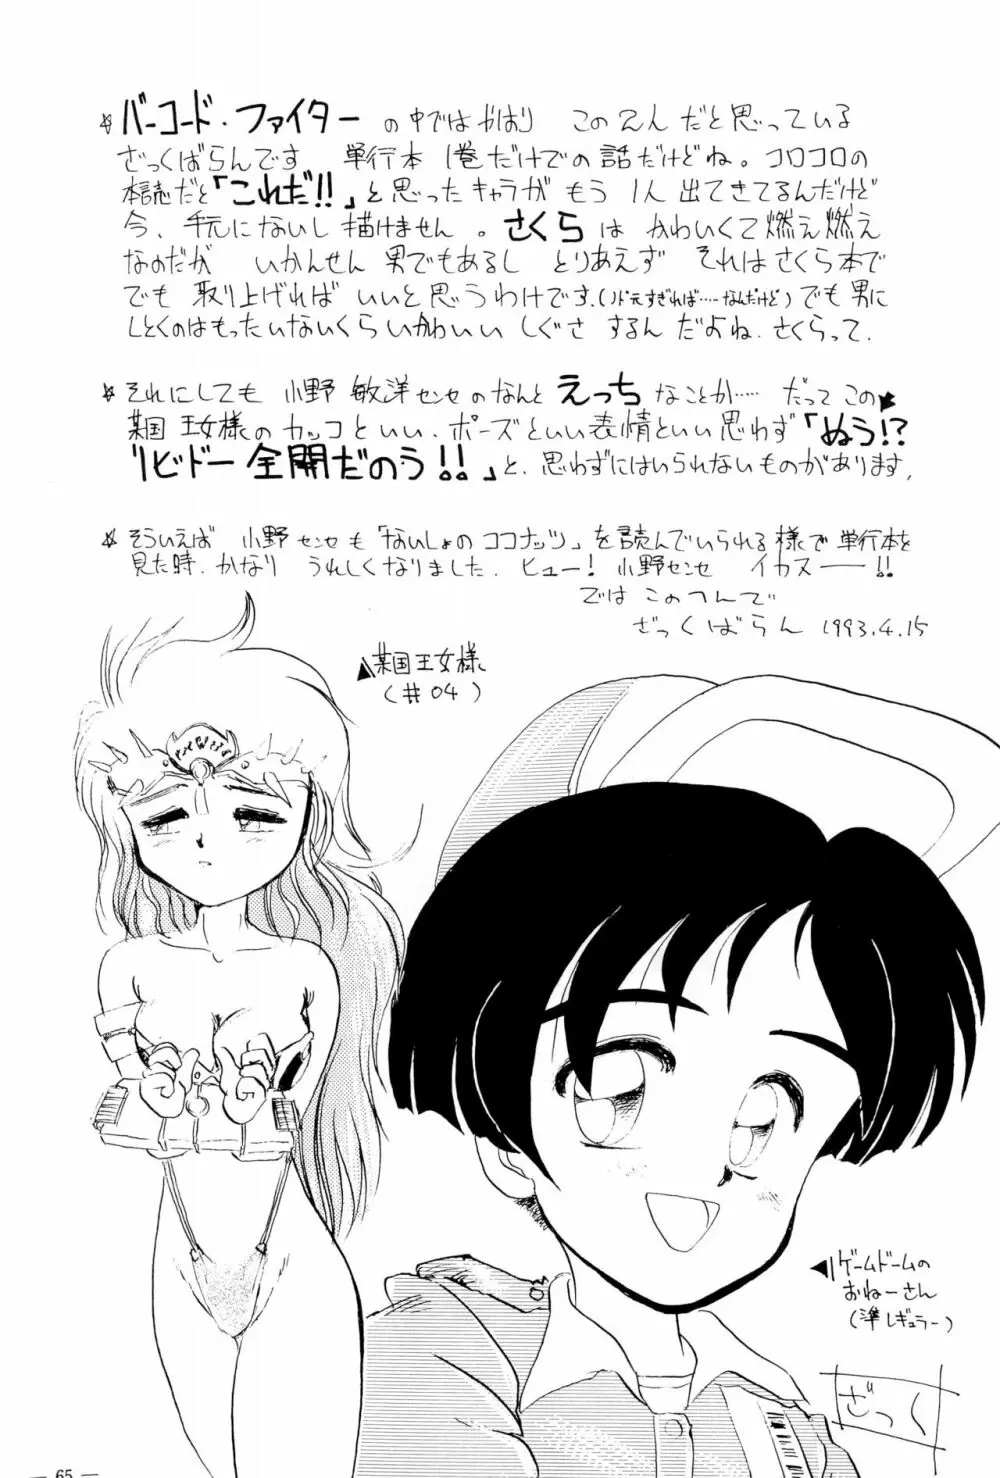 ☆バーコード・ファイターの中ではやはり このへんだと思っている
ざっくばらんです 単行本1巻だけでの話だけどね。コロコロの
本誌だと「これだ!!」と思ったキャラがもう1人出てきてるんだけど
今、手元にないし描けません。さくらはかわいくて燃え燃え
なのだが いかんせん男でもあるし とりあえず それはさくら本で
でも取り上げればいいと思うわけです。(ハド元すぎれば……なんだけど)でも男に
しとくのはもったいないくらいかわいいしぐさするんだよね、さくらって.
☆それにしても 小野敏洋センセのなんとえっちなことか……だってこの
某国王女様のカッコといい、ポーズといい表情といい思わず「ぬう!?
リビドー全開だのう!!」と、思わずにはいられないものがあります,
☆そういえば 小野センセも「ないしょのココナッツ」を読んでいられる様で単行本を
見た時、かなりうれしくなりました. ヒュー! 小野センセ イカスー!!
ではこのへんで
ざっくばらん 1993.4.15
▲某国王女様
(#04)
◀ゲームドームの
おねーさん
(準レギュラー)
ざっく
— 65 —